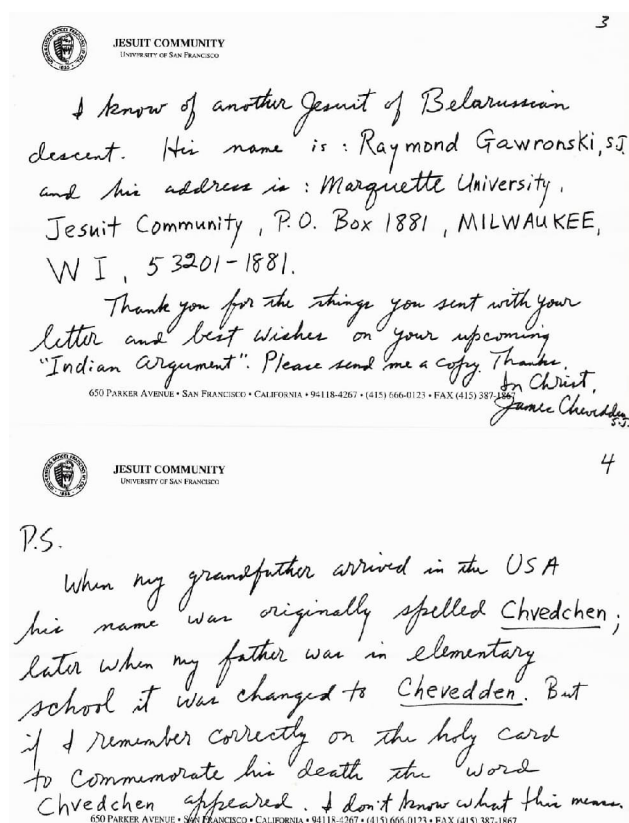 3
JESUIT COMMUNITY
UNIVERSITY OF SAN FRANCISCO
I know of another Jesuit of Belarussian
descent. His name is : Raymond Gawronski, S.J.
and his address is : Marquette University,
Jesuit Community, P.O. Box 1881, MILWAUKEE,
WI, 53201-1881.
Thank you for the things you sent with your
letter and best wishes on your upcoming
"Indian Argument". Please send me a copy. Thanks.
In Christ,
650 PARKER AVENUE • SAN FRANCISCO • CALIFORNIA • 94118-4267 • (415) 666-0123 • FAX (415) 387-1867
James Chevedden
S.J.
4
JESUIT COMMUNITY
UNIVERSITY OF SAN FRANCISCO
P.S.
When my grandfather arrived in the USA
his name was originally spelled Chvedchen;
later when my father was in elementary
school it was changed to Chevedden. But
if I remember correctly on the holy card
to commemorate his death the word
Chvedchen appeared. I don't know what this means.
650 PARKER AVENUE • SAN FRANCISCO • CALIFORNIA • 94118-4267 • (415) 666-0123 • FAX (415) 387-1867